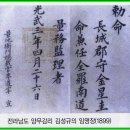 勅命
長城郡守金星圭
命兼任全羅南道
量務監理者
光武三年四月二十六日
전라남도 양무감리 김성규의 임명장(1899)